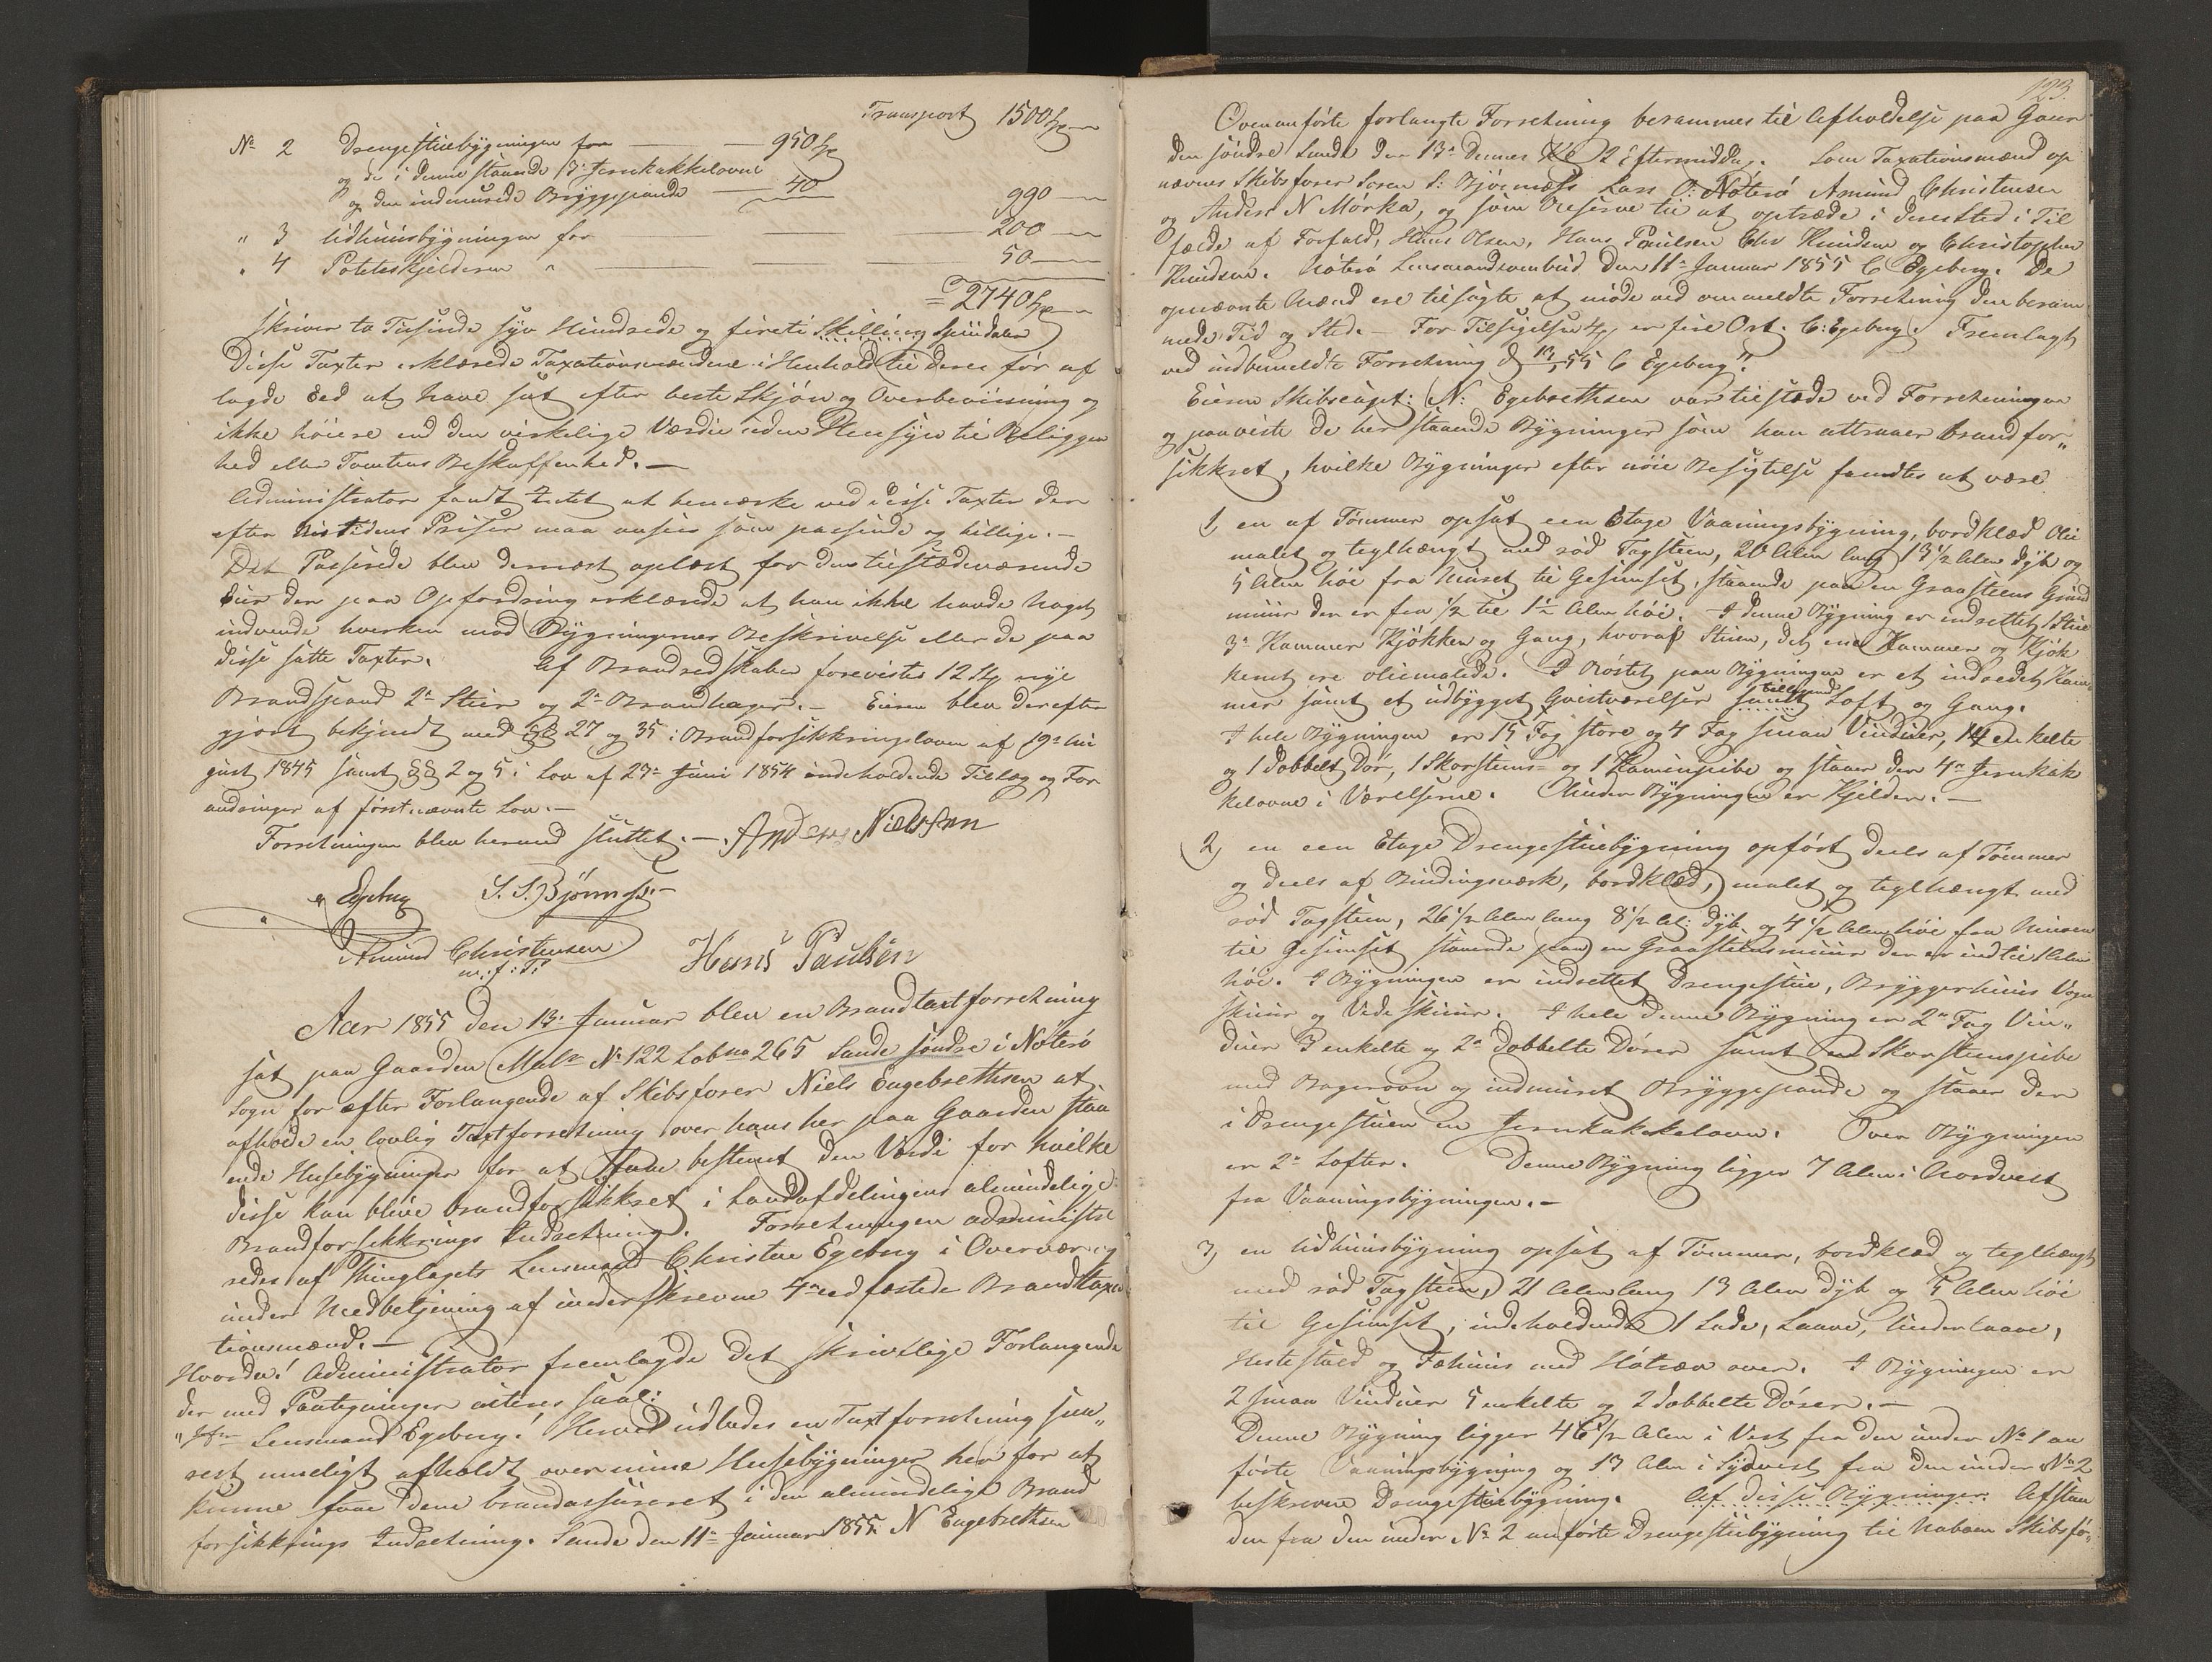 Transport 1500 Sp
No 2 Drengestuebygningen for — 950 Sp
og de i denne staaende 3 Jernkakkelovne
og den indmurede Bryggepande — 40 990 —
" 3 Udhuusbygningen for — 200 —
" 4 Poteteskjelderen " — 50 —
= 2740 Sp
skriver to Tusinde syv Hundrede og fireti Skilling Speciedaler
Disse Taxter erklærede Taxationsmændene i Henhold til deres før af
lagde Eed at have sat efter beste Skjøn og Overbeviisning og
ikke høiere end den virkelige Værdie uden Hensyn til Beliggen
hed eller Tomtens Beskaffenhed. —
Administrator fandt Intet at bemærke ved disse Taxter der
efter Nutidens Priser maa ansees som passende og billige. —
Det Passerede blev dernæst oplæst for den tilstædeværende
Eier der paa Opfordring erklærede at han ikke havde Noget
indvende hverken mod Bygningernes Beskrivelse eller de paa
disse satte Taxter. Af Brandredskaber forevistes 12 Stk nye
Brandspand 2de Stier og 2de Brandhager. — Eieren blev derefter
gjort bekjendt med §§ 27 og 35 i Brandforsikkringsloven af 19de Au
gust 1845 samt §§ 2 og 5 i Lov af 23de Juni 1854 indeholdende Tillæg og For
andringer af førstnævnte Lov. —
Forretningen blev hermed sluttet. — Anders Nielssen
Egeberg S. S. Bjørnæss
Amund Christensen Hans Paulsen
m: f: P:
Aar 1855 den 13de Januar blev en Brandtaxtforretning
sat paa Gaarden Matr No 122 Løbno 265 Sande søndre i Nøterø
Sogn for efter Forlangende af Skibsfører Niels Engebrethsen at
afholde en lovlig Taxtforretning over hans her paa Gaarden staa
ende Husebygninger for at faae bestemt den Værdi for hvilke
disse kan blive brandforsikkret i Landafdelingens almindelige
Brandforsikkrings Indretning. Forretningen administre
redes af Thinglagets Lensmand Christen Egeberg i Overvær og
under Medbetjening af underskrevne 4re edfæstede Brandtaxa
tionsmænd. —
Hvorda! Administrator fremlagde det skrivtlige Forlangende
der med Paategninger citeres saal:
" Lensmand Egeberg! Herved udbedes en Taxtforretning snа„
rest mueligt afholdt over mine Husebygninger her for at
kunne faae dem brandassureret i den almindelige Brand
forsikkrings Indretning. Sande den 11te Januar 1855. N Engebrethsen
123.
Ovenanførte forlangte Forretning berammes til Afholdelse paa Gaar
den søndre Sande den 13de Dennes Kl 2 Eftermiddag. Som Taxationsmænd op
nævnes Skibsfører Søren S: Bjørnæss Lars O: Nøterø Amund Christensen
og Anders N Mørka, og som Reserve til at optræde i deres Sted i Til
fælde af Forfald, Hans Olsen, Hans Paulsen Chr Knudsen og Christopher
Knudsen. Nøterø Lensmandsombud den 11te Januar 1855 C Egeberg. De
opnævnte Mænd ere tilsagte at møde ved ommeldte Forretning den beram
mede Tid og Sted. — For Tilsigelsen er fire Ort. C: Egeberg. Fremlagt
ved indbemeldte Forretning d 13/1 55 C Egeberg".
Eieren Skibscapt: N: Egebrethsen var tilstæde ved Forretningen
og paaviste de her staaende Bygninger som han attraaer brandfor„
sikkret, hvilke Bygninger efter nøie Besigtelse fandtes at være
1, en af Tømmer opsat een Etage Vaaningsbygning, bordklæd Olie
malet og teglhængt med rød Tagsteen, 20 Alen lang 13 1/2 Alen dyb og
5 Alen høi fra Muret til Gesimset, staaende paa en Graasteens Grund
muur der er fra 1/2 til 1 1/2 Alen høi. I denne Bygning er indrettet 1 Stue
3de Kammer Kjøkken og Gang, hvoraf Stuen, det ene Kammer og Kjøk
kenet ere oliemalede. I Røstet paa Bygningen er et indredet Kam„
mer samt et udbygget Qvistværelser samt tilligemed Loft og Gang.
I hele Bygningen er 15 Fag store og 4 Fag smaa Vinduer, 14 enkelte
og 1 dobbelt Dør, 1 Skorsteens- og 1 Kaminpibe og staaer der 4re Jernkak
kelovne i Værelserne. Under Bygningen er Kjelder. —
2, en een Etage Drengestuebygning opført deels af Tømmer
og deels af Bindingsværk, bordklæd, malet og teglhængt med
rød Tagsteen, 26 1/2 Alen lang 8 1/2 Al: dyb og 4 1/2 Alen høi fra Muren
til Gesimset staaende paa en Graasteensmuur der er indtil 1 Alen
høi. I Bygningen er indrettet Drengestue, Bryggerhuus Vogn
skuur og Vedeskuur. I hele denne Bygning er 2de Fag Vin„
duer 3 enkelte og 2de dobbelte Dører samt en Skorsteenspibe
med Bagerovn og indmuret Bryggepande og staaer der
i Drengestuen en Jernkakkelovn. Over Bygningen
er 2de Lofter. Denne Bygning ligger 7 Alen i Nordvest
fra Vaaningsbygningen. —
3, en Udhuusbygning opsat af Tømmer, bordklæd og teglhængt
med rød Tagsteen, 21 Alen lang 13 Alen dyb og 5 Alen høi
til Gesimset, indeholdende 1 Lade, Laave, Underlaave,
Hestestald og Fæhuus med Høtræv over. I Bygningen er
2 smaa Vinduer 5 enkelte og 2 dobbelte Dører. —
Denne Bygning ligger 46 1/2 Alen i Vest fra den under No 1 an
førte Vaaningsbygning og 13 Alen i Sydvest fra den under No 2
beskrevne Drengestuebygning. Af disse Bygninger Afstan
den fra den under No 2 anførte Drengestuebygning til Naboen Skibsfø„